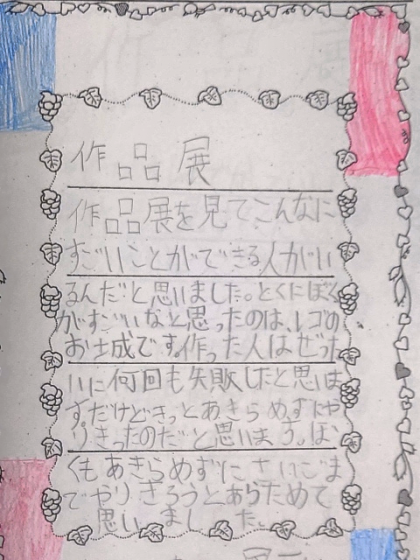 作品展
作品展を見てこんなに
すごいことができる人がい
るんだと思いました。とくにぼく
がすごいなと思ったのは、レゴの
お土成です。作った人はぜった
いに何回も失敗したと思いま
すだけどきっとあきらめずにや
りきったのだと思います。ぼ
くもあきらめずにさいごま
でやりきろうとあらためて
思いました。